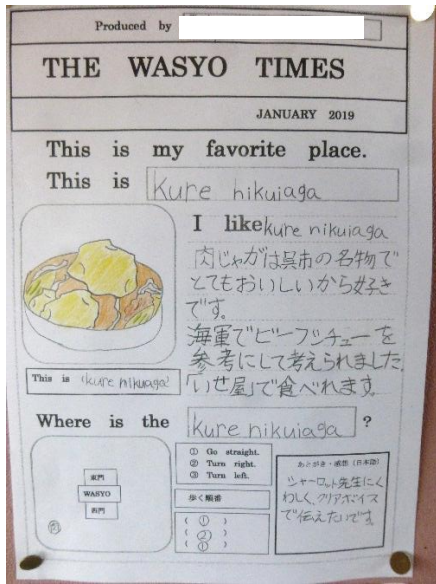 Produced by
THE WASYO TIMES
JANUARY 2019
This is my favorite place.
This is kure nikujaga
I like kure nikujaga
肉じゃがは呉市の名物で
とてもおいしいから好き
です。
海軍でビーフシチューを
参考にして考えられました。
「いせ屋」で食べれます。
This is (kure nikujaga)
Where is the kure nikujaga ?
東門
WASYO
西門
① Go straight.
② Turn right.
③ Turn left.
歩く順番
( ① )
( ② )
( ① )
あとがき・感想(日本語)
シャーロット先生にく
わしく、クリアボイス
で伝えたいです。